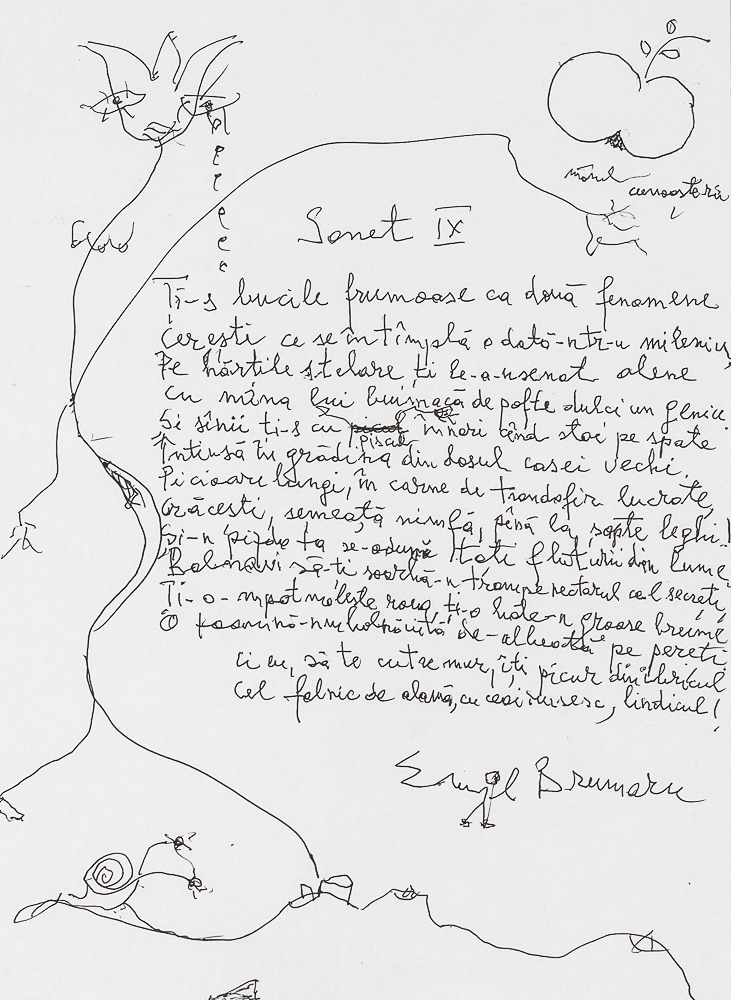 mărul cunoașterii
Sonet IX
Ți-s bucile frumoase ca două fenomene
Cerești ce se întîmplă odată-ntr-u mileniu,
Pe hărțile stelare ți le-a-nsemnat alene
Cu mîna lui buimacă de pofte dulci un geniu.
Și sînii ți-s cu piscul înnori cînd stai pe spate
Întinsă în grădina din dosul casei vechi.
Picioare lungi, în carne de trandafir lucrate,
Grăcești, semeață nimfă, pînă la șapte leghi!
Și-n pizda ta se-adună toți fluturii din lume
Bolnavi să-ți soarbă-n trompe nectarul cel secret,
Ți-o-mpotmolește roua, ți-o bate-n groase brume
O toamnă-nnebolnăvită de-albeață pe pereți
Ci eu, să te cutremur, îți picur din ibricul
Cel falnic de alamă, cu ceai rusesc, lindicul!
Emil Brumaru